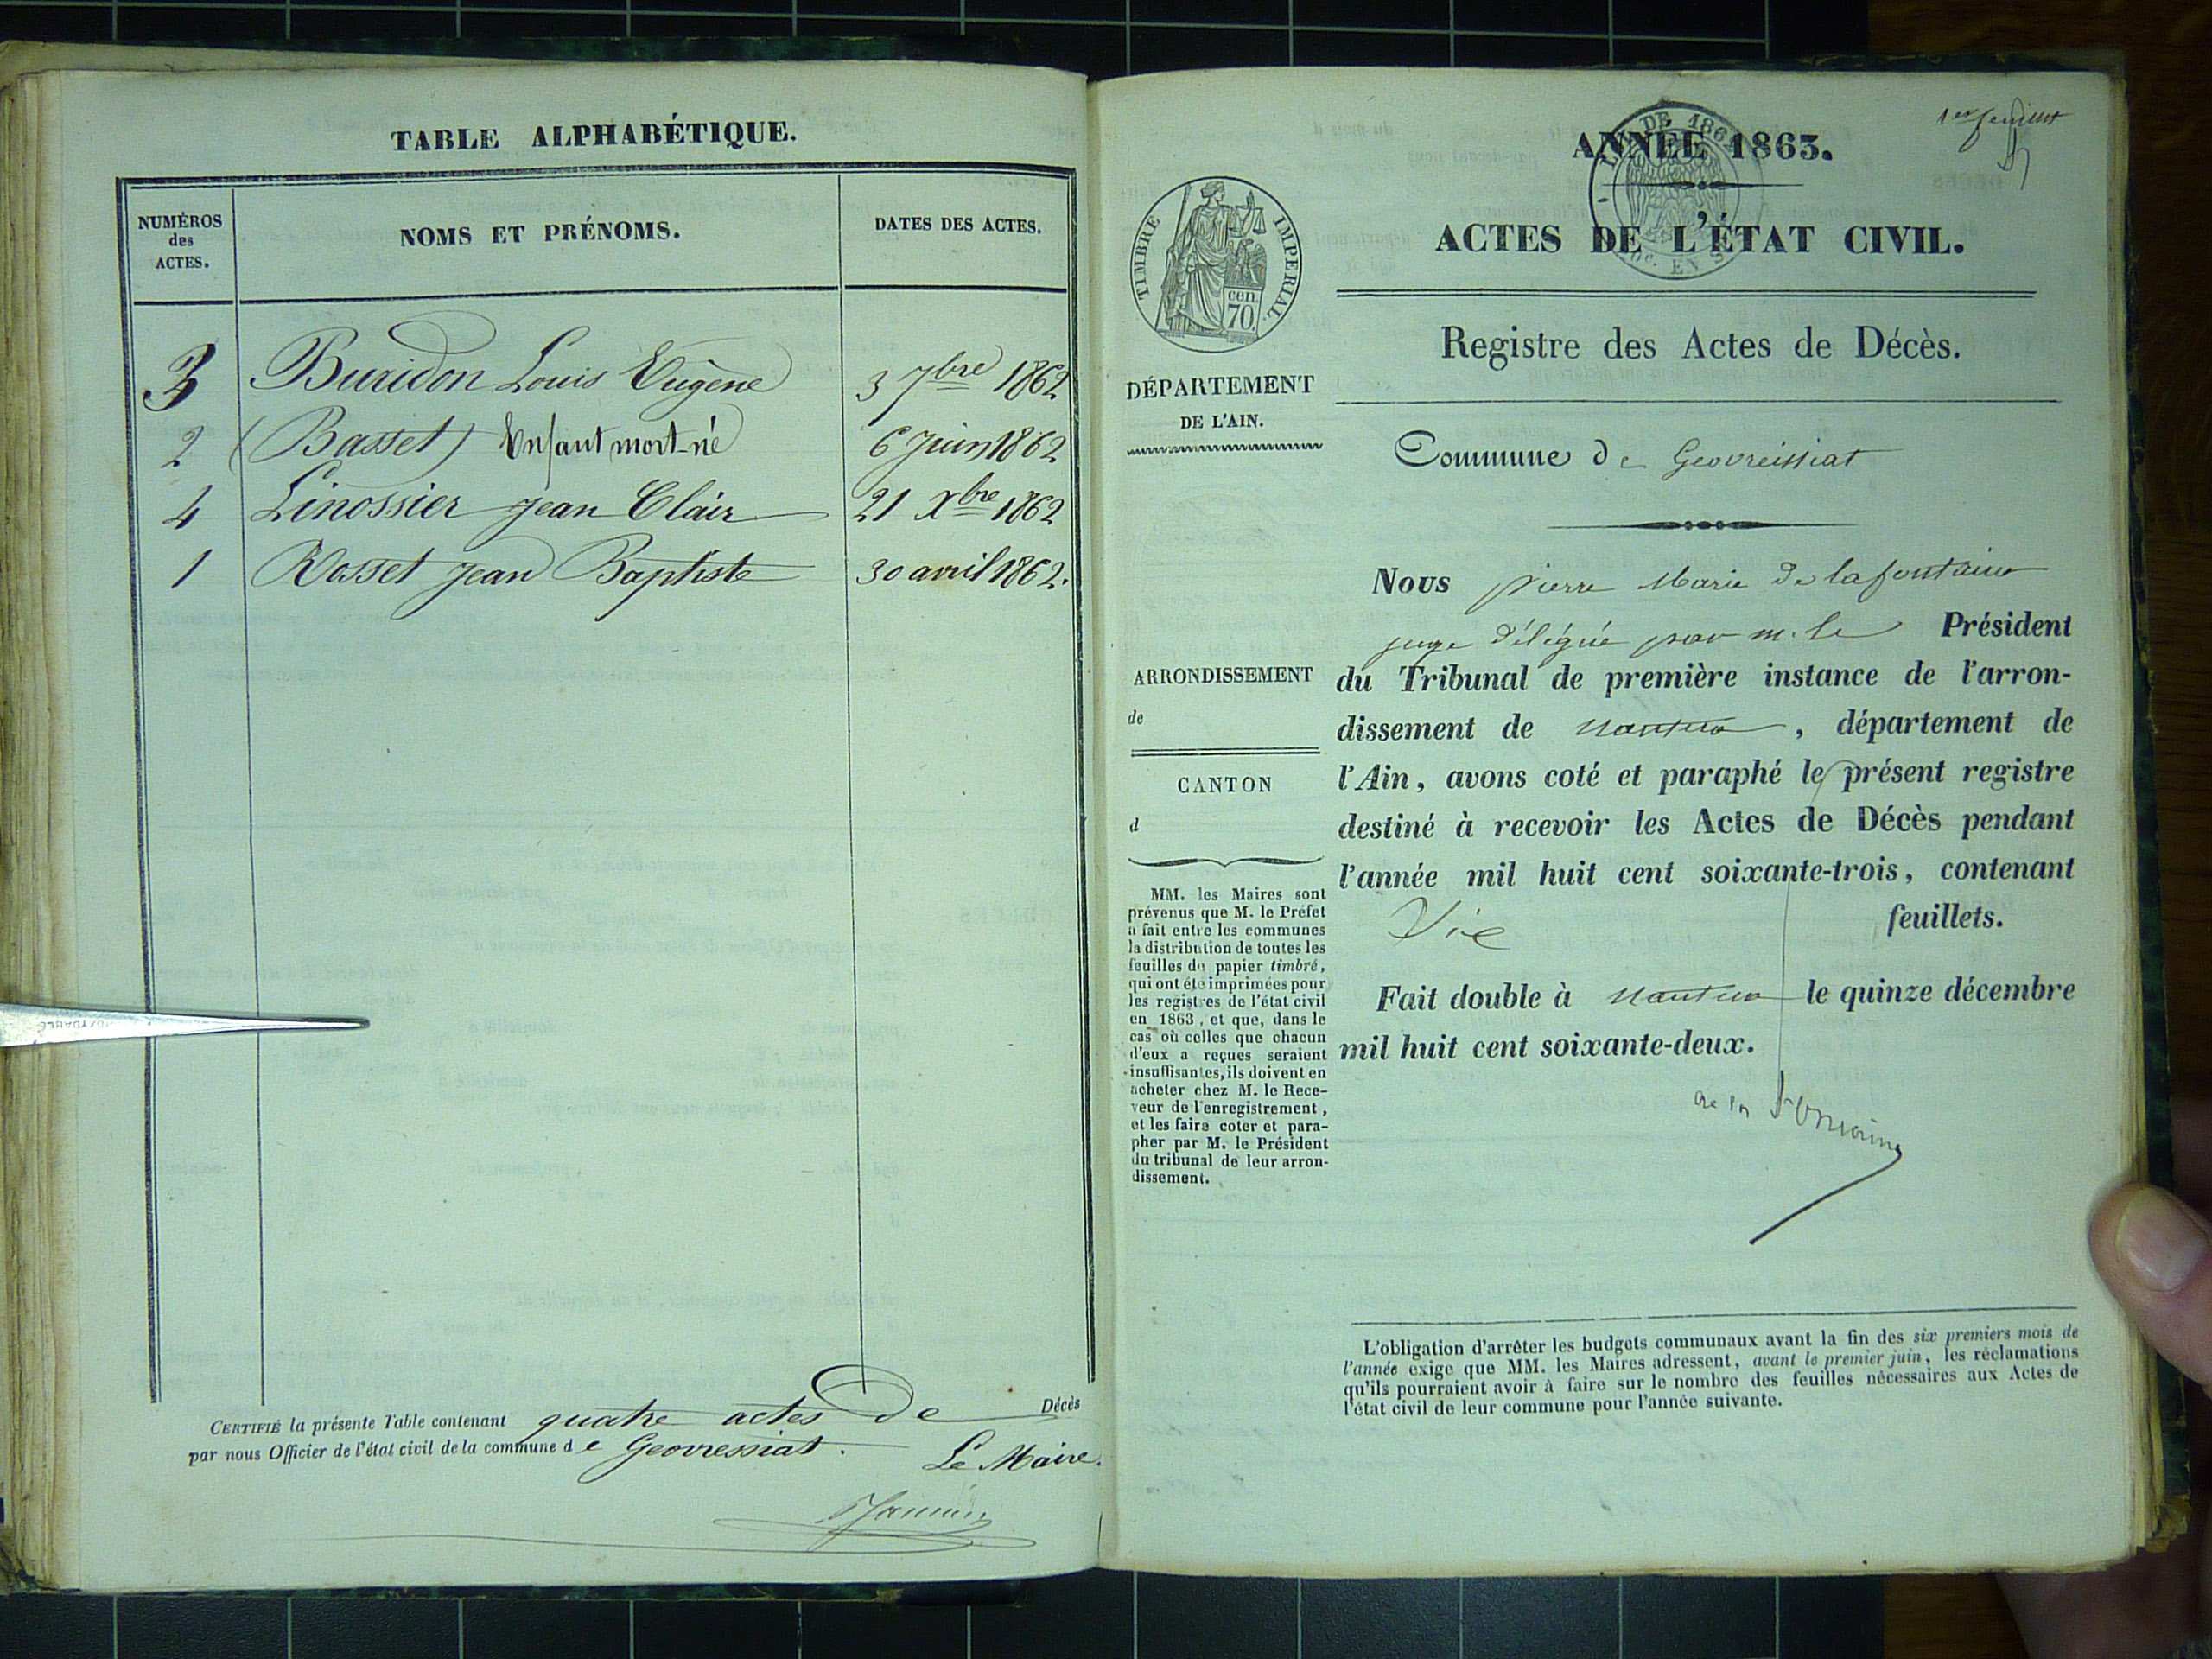 TABLE ALPHABÉTIQUE.
NUMÉROS
des
ACTES.
NOMS ET PRÉNOMS.
DATES DES ACTES.
3 Buridon Louis Eugène 3 7bre 1862
2 (Basset) Enfant mort-né 6 Juin 1862
4 Linossier Jean Clair 21 Xbre 1862
1 Rosset Jean Baptiste 30 avril 1862.
CERTIFIÉ la présente Table contenant quatre actes de Décès
par nous Officier de l'état civil de la commune de Geovressiat.
Le Maire.
1er feuillet
ANNÉE 1863.
ACTES DE L'ÉTAT CIVIL.
TIMBRE IMPERIAL.
cen.
70.
Registre des Actes de Décès.
DÉPARTEMENT
DE L'AIN.
Commune de Geovreissiat
Nous pierre Marie De lafontaine
juge délégué par m. le Président
du Tribunal de première instance de l'arron-
dissement de Nantua, département de
l'Ain, avons coté et paraphé le présent registre
destiné à recevoir les Actes de Décès pendant
l'année mil huit cent soixante-trois, contenant
feuillets.
Fait double à Nantua le quinze décembre
mil huit cent soixante-deux.
ARRONDISSEMENT
de
CANTON
d
MM. les Maires sont
prévenus que M. le Préfet
a fait entre les communes
la distribution de toutes les
feuilles du papier timbré,
qui ont été imprimées pour
les registres de l'état civil
en 1863, et que, dans le
cas où celles que chacun
d'eux a reçues seraient
insuffisantes, ils doivent en
acheter chez M. le Rece-
veur de l'enregistrement,
et les faire coter et para-
pher par M. le Président
du tribunal de leur arron-
dissement.
L'obligation d'arrêter les budgets communaux avant la fin des six premiers mois de
l'année exige que MM. les Maires adressent, avant le premier juin, les réclamations
qu'ils pourraient avoir à faire sur le nombre des feuilles nécessaires aux Actes de
l'état civil de leur commune pour l'année suivante.